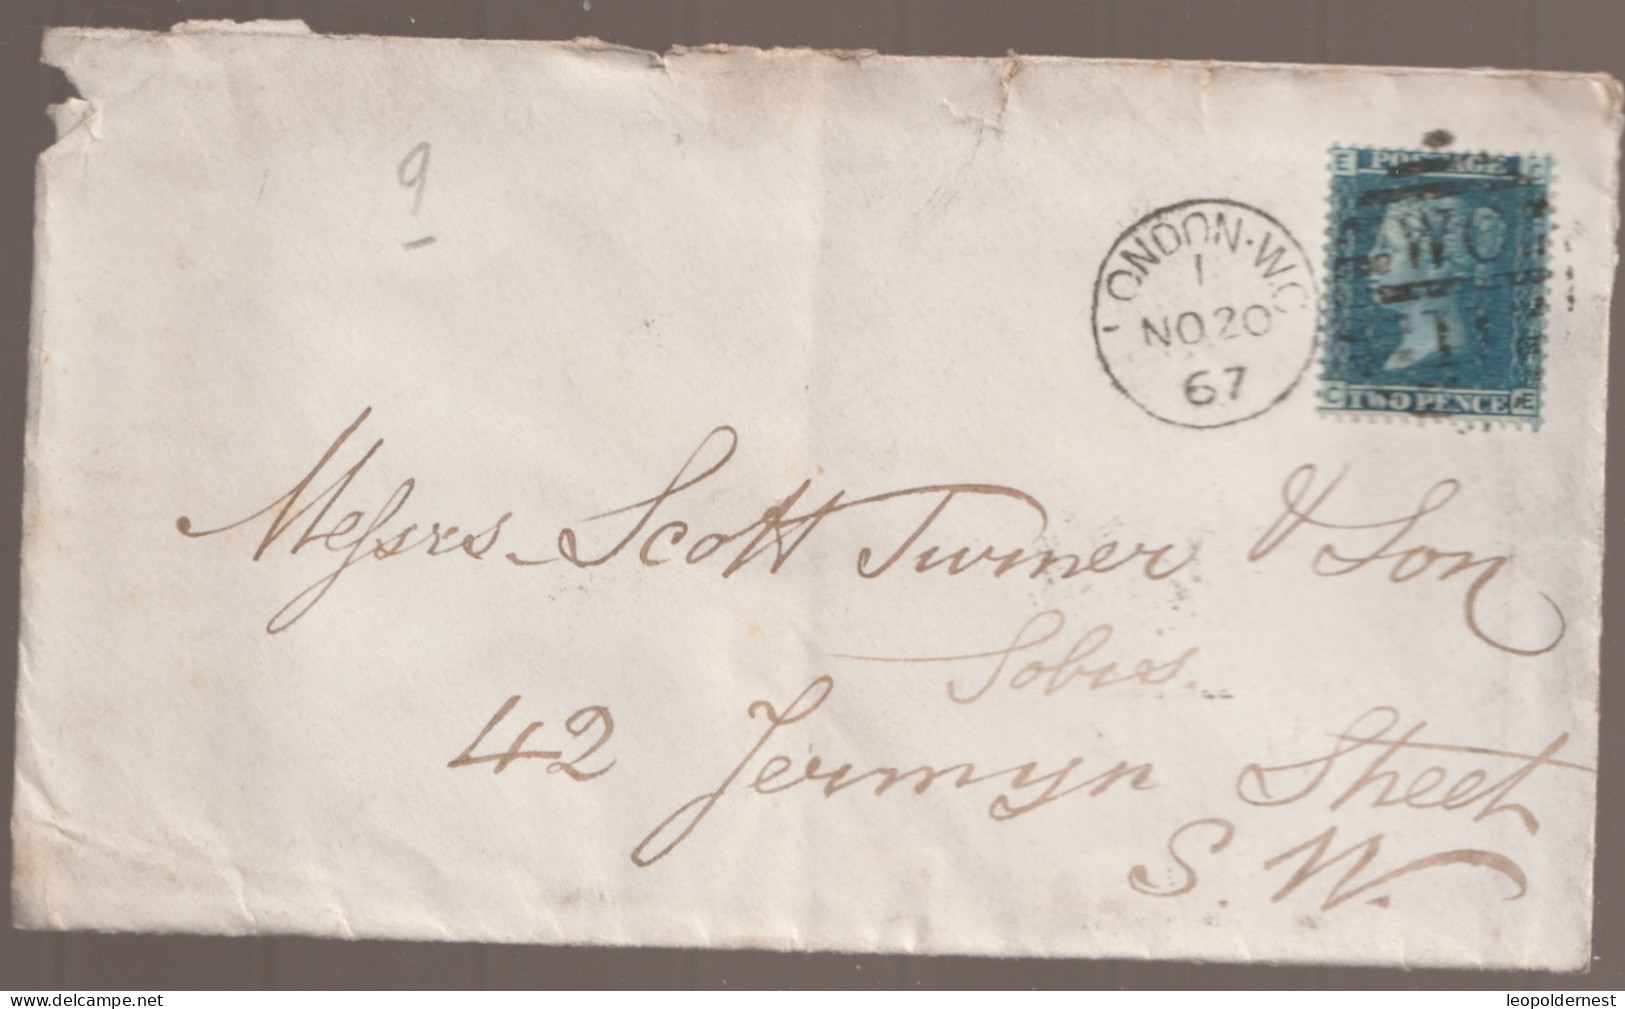 9
LONDON·W.C
1
NO 20
67
E POSTAGE C
WC
C TWO PENCE E
Messrs Scott Turner & Son
42 Jermyn Street
S. W.
www.delcampe.net
leopoldernest